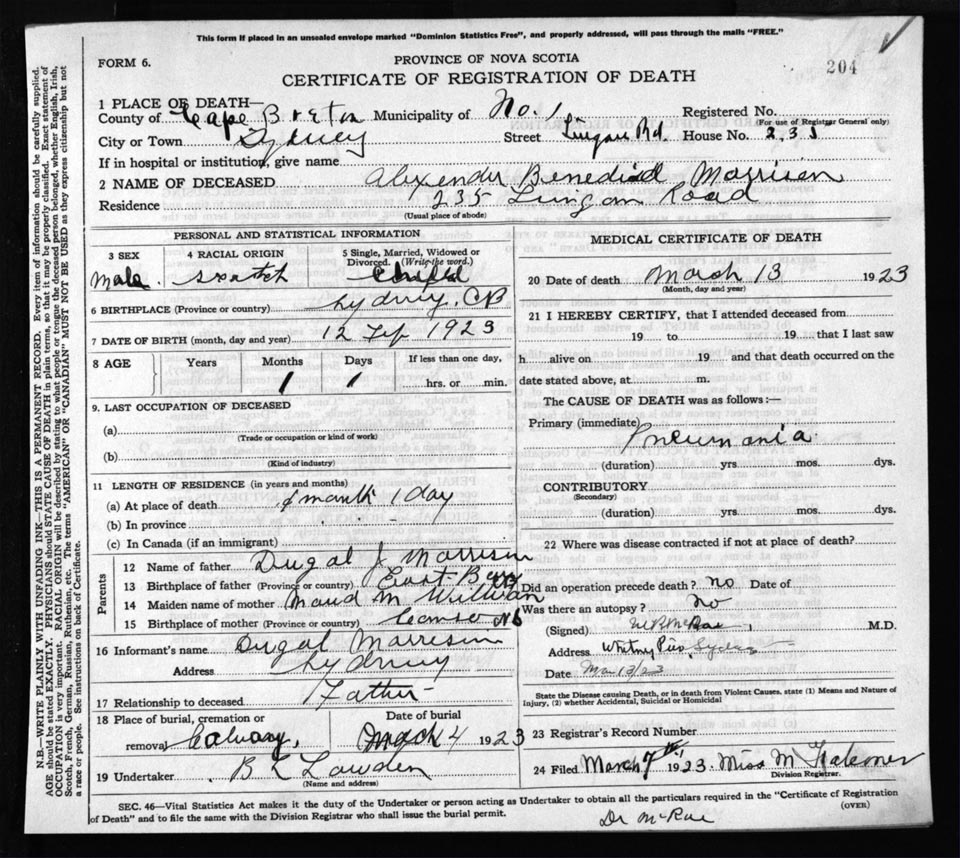 This form if placed in an unsealed envelope marked "Dominion Statistics Free", and properly addressed, will pass through the mails "FREE."
FORM 6.
PROVINCE OF NOVA SCOTIA
204
CERTIFICATE OF REGISTRATION OF DEATH
1 PLACE OF DEATH—
County of Cape Breton Municipality of No. 1 Registered No.
(For use of Registrar General only)
City or Town Sydney Street Lingan Rd. House No. 235
If in hospital or institution, give name
2 NAME OF DECEASED Alexender Benedict Morrison
Residence 235 Lingan Road
(Usual place of abode)
PERSONAL AND STATISTICAL INFORMATION
3 SEX 4 RACIAL ORIGIN 5 Single, Married, Widowed or Divorced. (Write the word.)
Male. Scotch Child
6 BIRTHPLACE (Province or country) Sydney, CB
7 DATE OF BIRTH (month, day and year) 12 1923
8 AGE Years Months Days If less than one day,
1 1 hrs. or min.
9. LAST OCCUPATION OF DECEASED
(a)
(Trade or occupation or kind of work)
(b)
(Kind of industry)
11 LENGTH OF RESIDENCE (in years and months)
(a) At place of death 1 month 1 day
(b) In province
(c) In Canada (if an immigrant)
Parents
12 Name of father Dugal J Morrison
13 Birthplace of father (Province or country) East Bay CB
14 Maiden name of mother Maud M
15 Birthplace of mother (Province or country) Canso NS
16 Informant's name Dugal Morrison
Address Sydney
17 Relationship to deceased Father
18 Place of burial, cremation or removal Calvary, Date of burial March 4 1923
19 Undertaker B L Lowden
(Name and address)
MEDICAL CERTIFICATE OF DEATH
20 Date of death March 13 1923
(Month, day and year)
21 I HEREBY CERTIFY, that I attended deceased from
19 to 19 that I last saw
h alive on 19 and that death occurred on the
date stated above, at m.
The CAUSE OF DEATH was as follows:—
Primary (immediate) Pneumonia
(duration) yrs. mos. dys.
CONTRIBUTORY
(Secondary)
(duration) yrs. mos. dys.
22 Where was disease contracted if not at place of death?
Did an operation precede death? no Date of
Was there an autopsy? No
(Signed) McRae M.D.
Address Whitney Pier, Sydney
Date Mar 13/23
State the Disease causing Death, or in death from Violent Causes, state (1) Means and Nature of
Injury, (2) whether Accidental, Suicidal or Homicidal
23 Registrar's Record Number
24 Filed March 7th 1923. Miss M
Division Registrar.
SEC. 46—Vital Statistics Act makes it the duty of the Undertaker or person acting as Undertaker to obtain all the particulars required in the "Certificate of Registration
of Death" and to file the same with the Division Registrar who shall issue the burial permit.
(OVER)
Dr McRae
N.B.—WRITE PLAINLY WITH UNFADING INK—THIS IS A PERMANENT RECORD. Every item of information should be carefully supplied.
AGE should be stated EXACTLY. PHYSICIANS should STATE CAUSE OF DEATH in plain terms, so that it may be properly classified. Exact statement of
OCCUPATION is very important. RACIAL ORIGIN will be described by stating to what people or tongue the deceased person belonged, whether English, Irish,
Scotch, French, German, Russian, Ruthenian, etc. The terms "AMERICAN" OR "CANADIAN" MUST NOT BE USED as they express citizenship but not
a race or people. See instructions on back of Certificate.